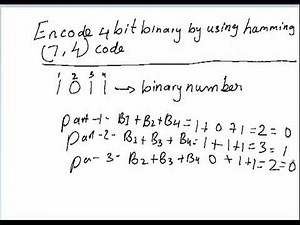 Encode 4 bit binary by using hamming
(7,4) code
1 2 3 4
1 0 1 1 → binary number
part-1- B1+B2+B4=1+0+1=2=0
part-2- B1+B3+B4=1+1+1=3=1
par-3- B2+B3+B4 0+1+1=2=0